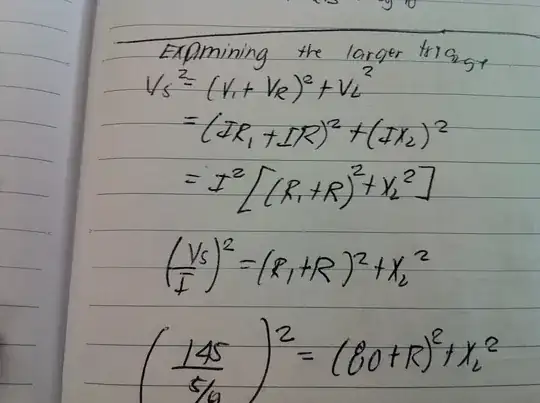 Examining the larger triangle
Vs² = (V₁ + VR)² + VL²
= (IR₁ + IR)² + (IXL)²
= I² [(R₁ + R)² + XL²]
(Vs/I)² = (R₁ + R)² + XL²
(145/(5/9))² = (80 + R)² + XL²